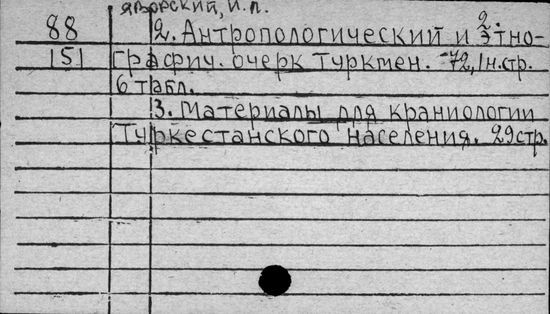 Яворский, И.Л.
2.
88 2. Антропологический и этно-
151 графич. очерк Туркмен. -72, 1н.стр.
6 табл.
3. Материалы для краниологии
Туркестанского населения. 29 стр.